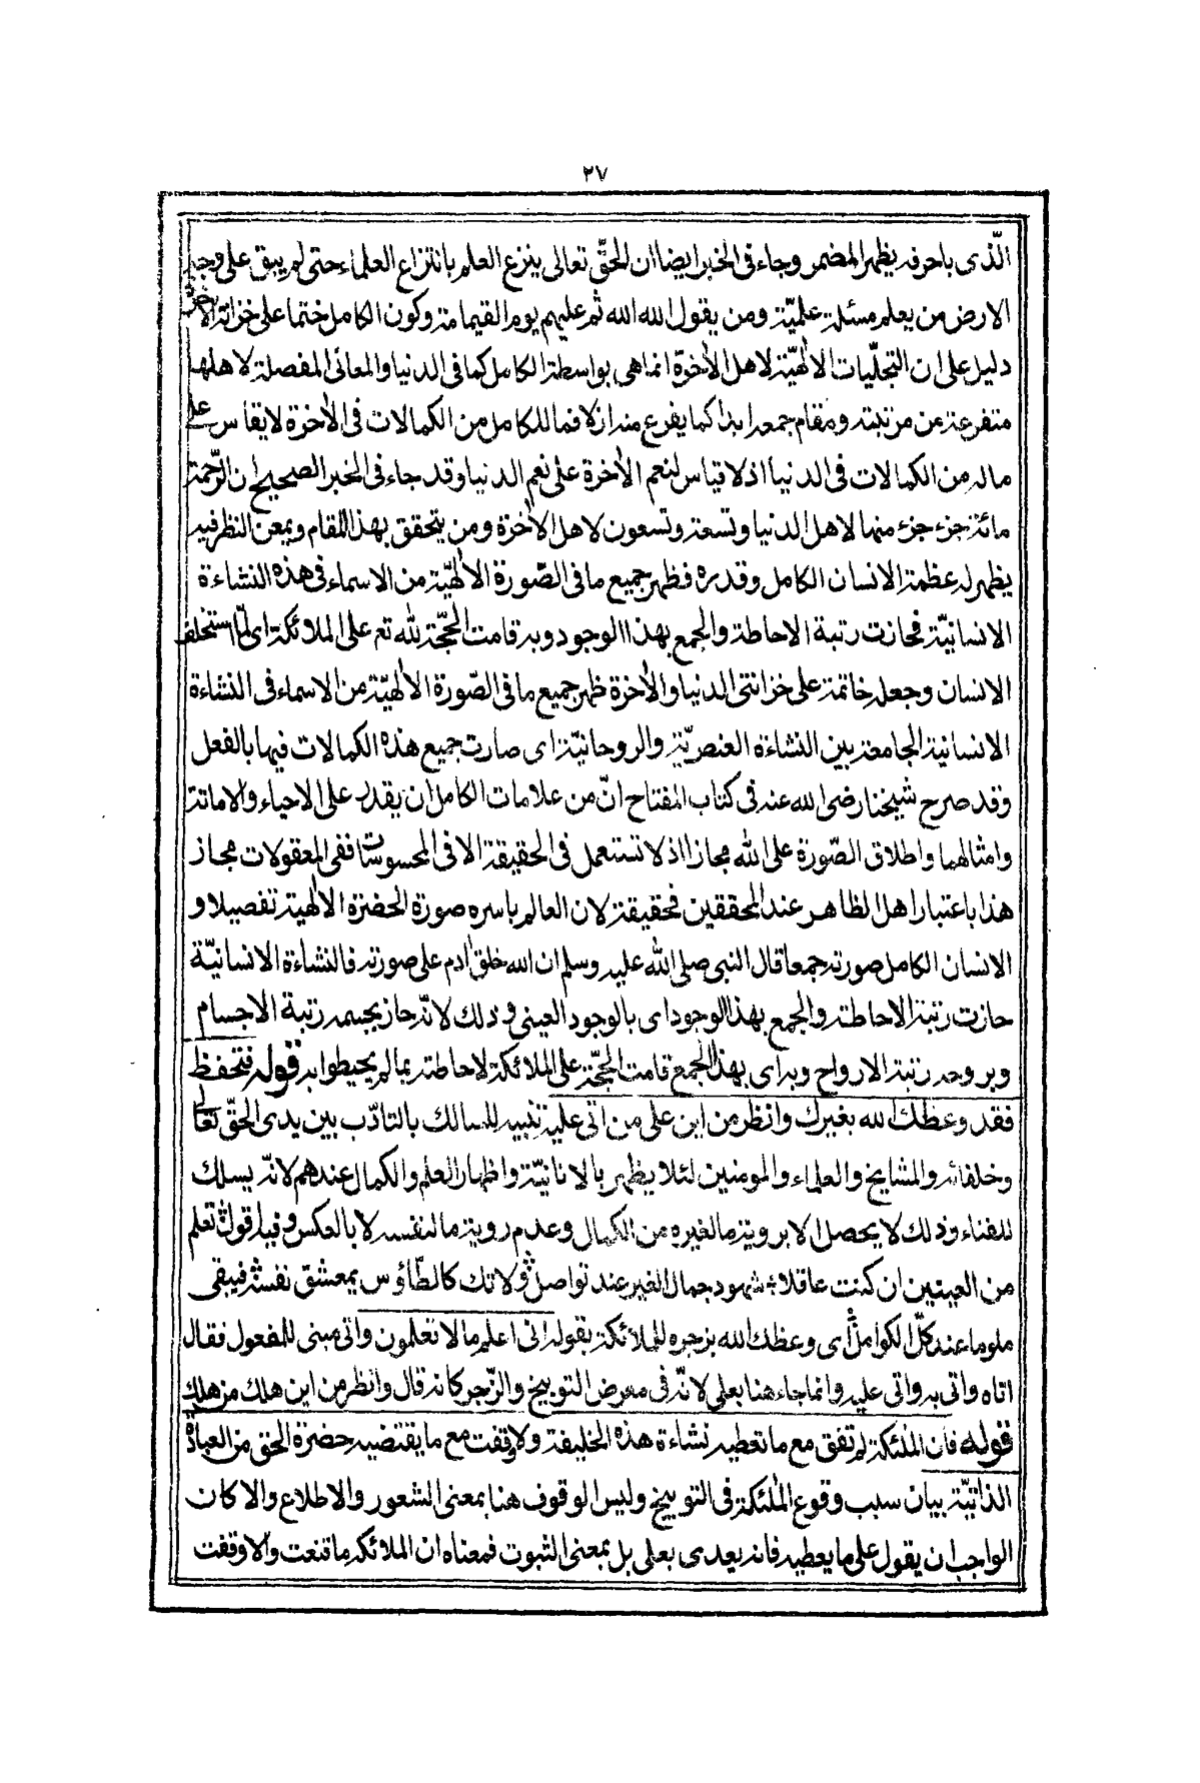 ٢٧
الّذى باحرفه يظهر المضمر وجاء فى الخبر ايضا ان الحقّ تعالى ينزع العلم بانتزاع العلماء حتى لم يبق على وجه
الارض من يعلم مسئلة علميّة ومن يقول الله الله ثم عليهم يوم القيامة وكون الكامل ختما على خزانة الاخرة
دليل على ان التجلّيات الالٰهيّة لاهل الاٰخرة انما هى بواسطة الكامل كما فى الدنيا والمعانى المفصلة لاهلها
متفرعة من مرتبته ومقام جمعه ابدا كما يفرع منه ازلا فما للكامل من الكمالات فى الاٰخرة لايقاس على
ماله من الكمالات فى الدنيا اذ لا قياس لنعم الاٰخرة على نعم الدنيا وقد جاء فى الخبر الصحيح ان الرّحمة
مائة جزء جزء منها لاهل الدنيا وتسعة وتسعون لاهل الاٰخرة ومن يتحقق بهذا المقام ويمعن النظر فيه
يظهر له عظمة الانسان الكامل وقدره فظهر جميع ما فى الصّورة الالٰهيّة من الاسماء فى هذه النشاءة
الانسانيّة فحازت رتبة الاحاطة والجمع بهذا الوجود وبه قامت الحجّة لله تع على الملائكة اى لمّا استخلف
الانسان وجعله خاتمة على خزانتى الدنيا والاٰخرة ظهر جميع ما فى الصّورة الالٰهيّة من الاسماء فى النشاءة
الانسانية الجامعة بين النشاءة العنصريّة والروحانيّة اى صارت جميع هذه الكمالات فيها بالفعل
وقد صرح شيخنا رضى الله عنه فى كتاب المفتاح انّ من علامات الكامل ان يقدر على الاحياء والاماتة
وامثالهما واطلاق الصّورة على الله مجاز اذ لا تستعمل فى الحقيقة الا فى المحسوسات ففى المعقولات مجاز
هذا باعتبار اهل الظاهر عند المحققين فحقيقة لان العالم باسره صورة الحضرة الالٰهية تفصيلا و
الانسان الكامل صورته جمعا قال النبى صلى الله عليه وسلم ان الله خلق اٰدم على صورته فالنشاءة الانسانيّة
حازت رتبة الاحاطة والجمع بهذا الوجود اى بالوجود العينى وذلك لانّه حاز بجسمه رتبة الاجسام
وبروحه رتبة الارواح وبه اى بهذا الجمع قامت الحجّة على الملائكة لاحاطته بما لم يحيطوا به قوله فتحفظ
فقد وعظك الله بغيرك وانظر من اين على من اتى عليه تنبيه للسالك بالتادّب بين يدى الحقّ تعالى
وخلفائه والمشايخ والعلماء والمومنين لئلا يظهر بالانانيّة واظهار العلم والكمال عندهم لانّه يسلك
للفناء وذلك لا يحصل الا بروية ما لغيره من الكمال وعدم روية ما لنفسه لا بالعكس وفيه قول تعلم
من العينين ان كنت عاقلا شهود جمال الغير عند تواصل ولاتك كالطاؤس يمعشق نفسه فيبقى
ملوما عند كلّ الكوامل اى وعظك الله بزجره للملائكة بقوله انى اعلم ما لا تعلمون واتى مبنى للمفعول فقال
اتاه واتى به واتى عليه وانما جاء هنا بعلى لانّه فى معرض التوبيخ والزّجر كانه قال وانظر من اين هلك من هلك
قوله فان الملٰئكة لم تقف مع ما تعطيه نشاءة هذه الخليفة ولا وقفت مع ما يقتضيه حضرة الحق من العبادة
الذاتيّة بيان سبب وقوع الملٰئكة فى التوبيخ وليس الوقوف هنا بمعنى الشعور والاطلاع والا كان
الواجب ان يقول على ما يعطيه فانه يعدى بعلى بل بمعنى الثبوت فمعناه ان الملائكه ما قنعت والا وقفت